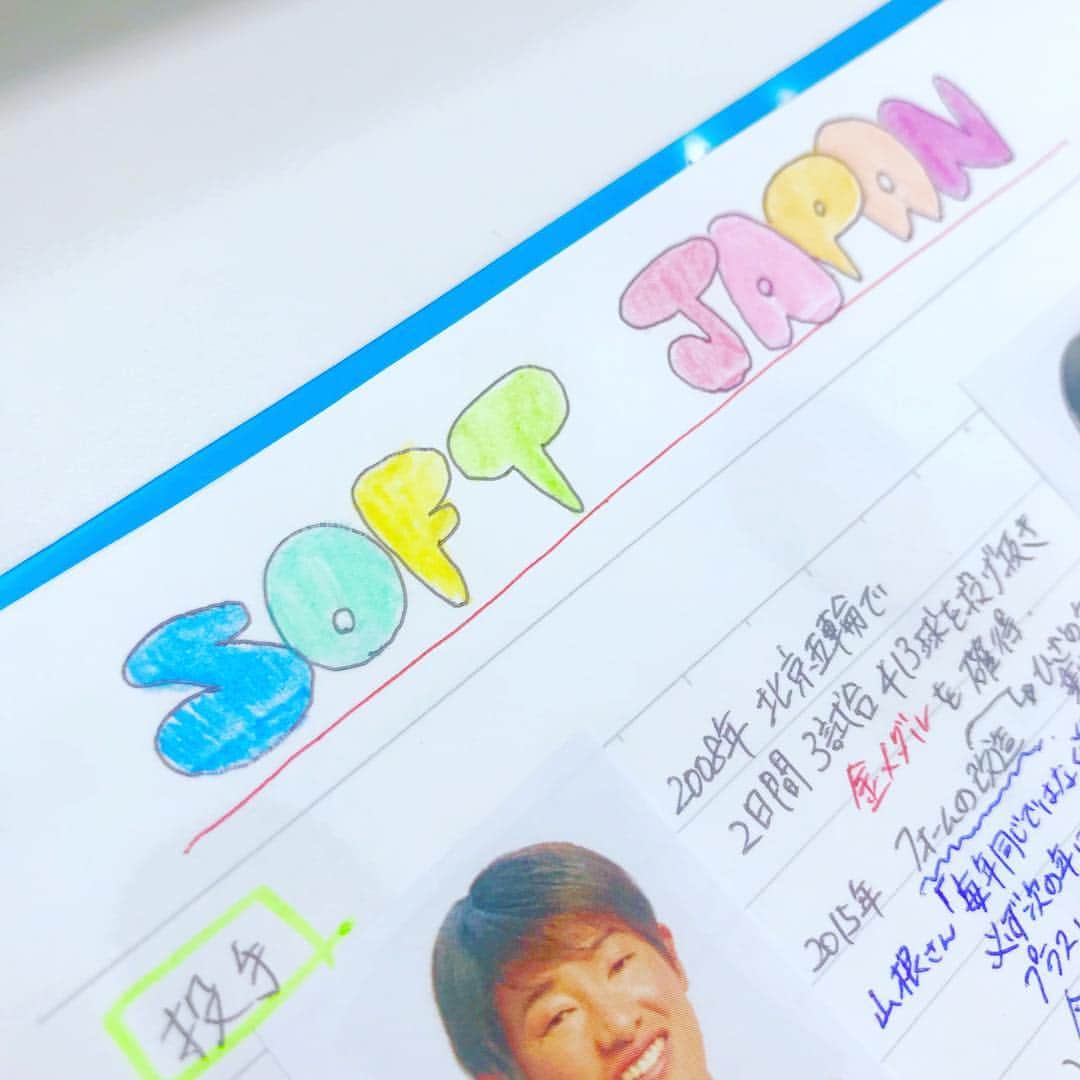 SOFT JAPAN
2008年 北京五輪で
2日間 3試合 413球を投げ抜き
金メダルを確得.
2015年 フォームの改造 → ひかめ
山根さん「毎年同じではなく
必ず次の年に
プラス
投手